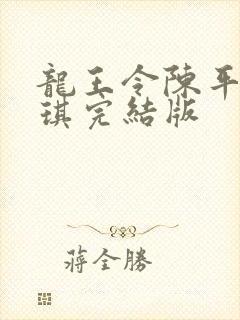 龍王令陳平
琪完結版
蔣全勝